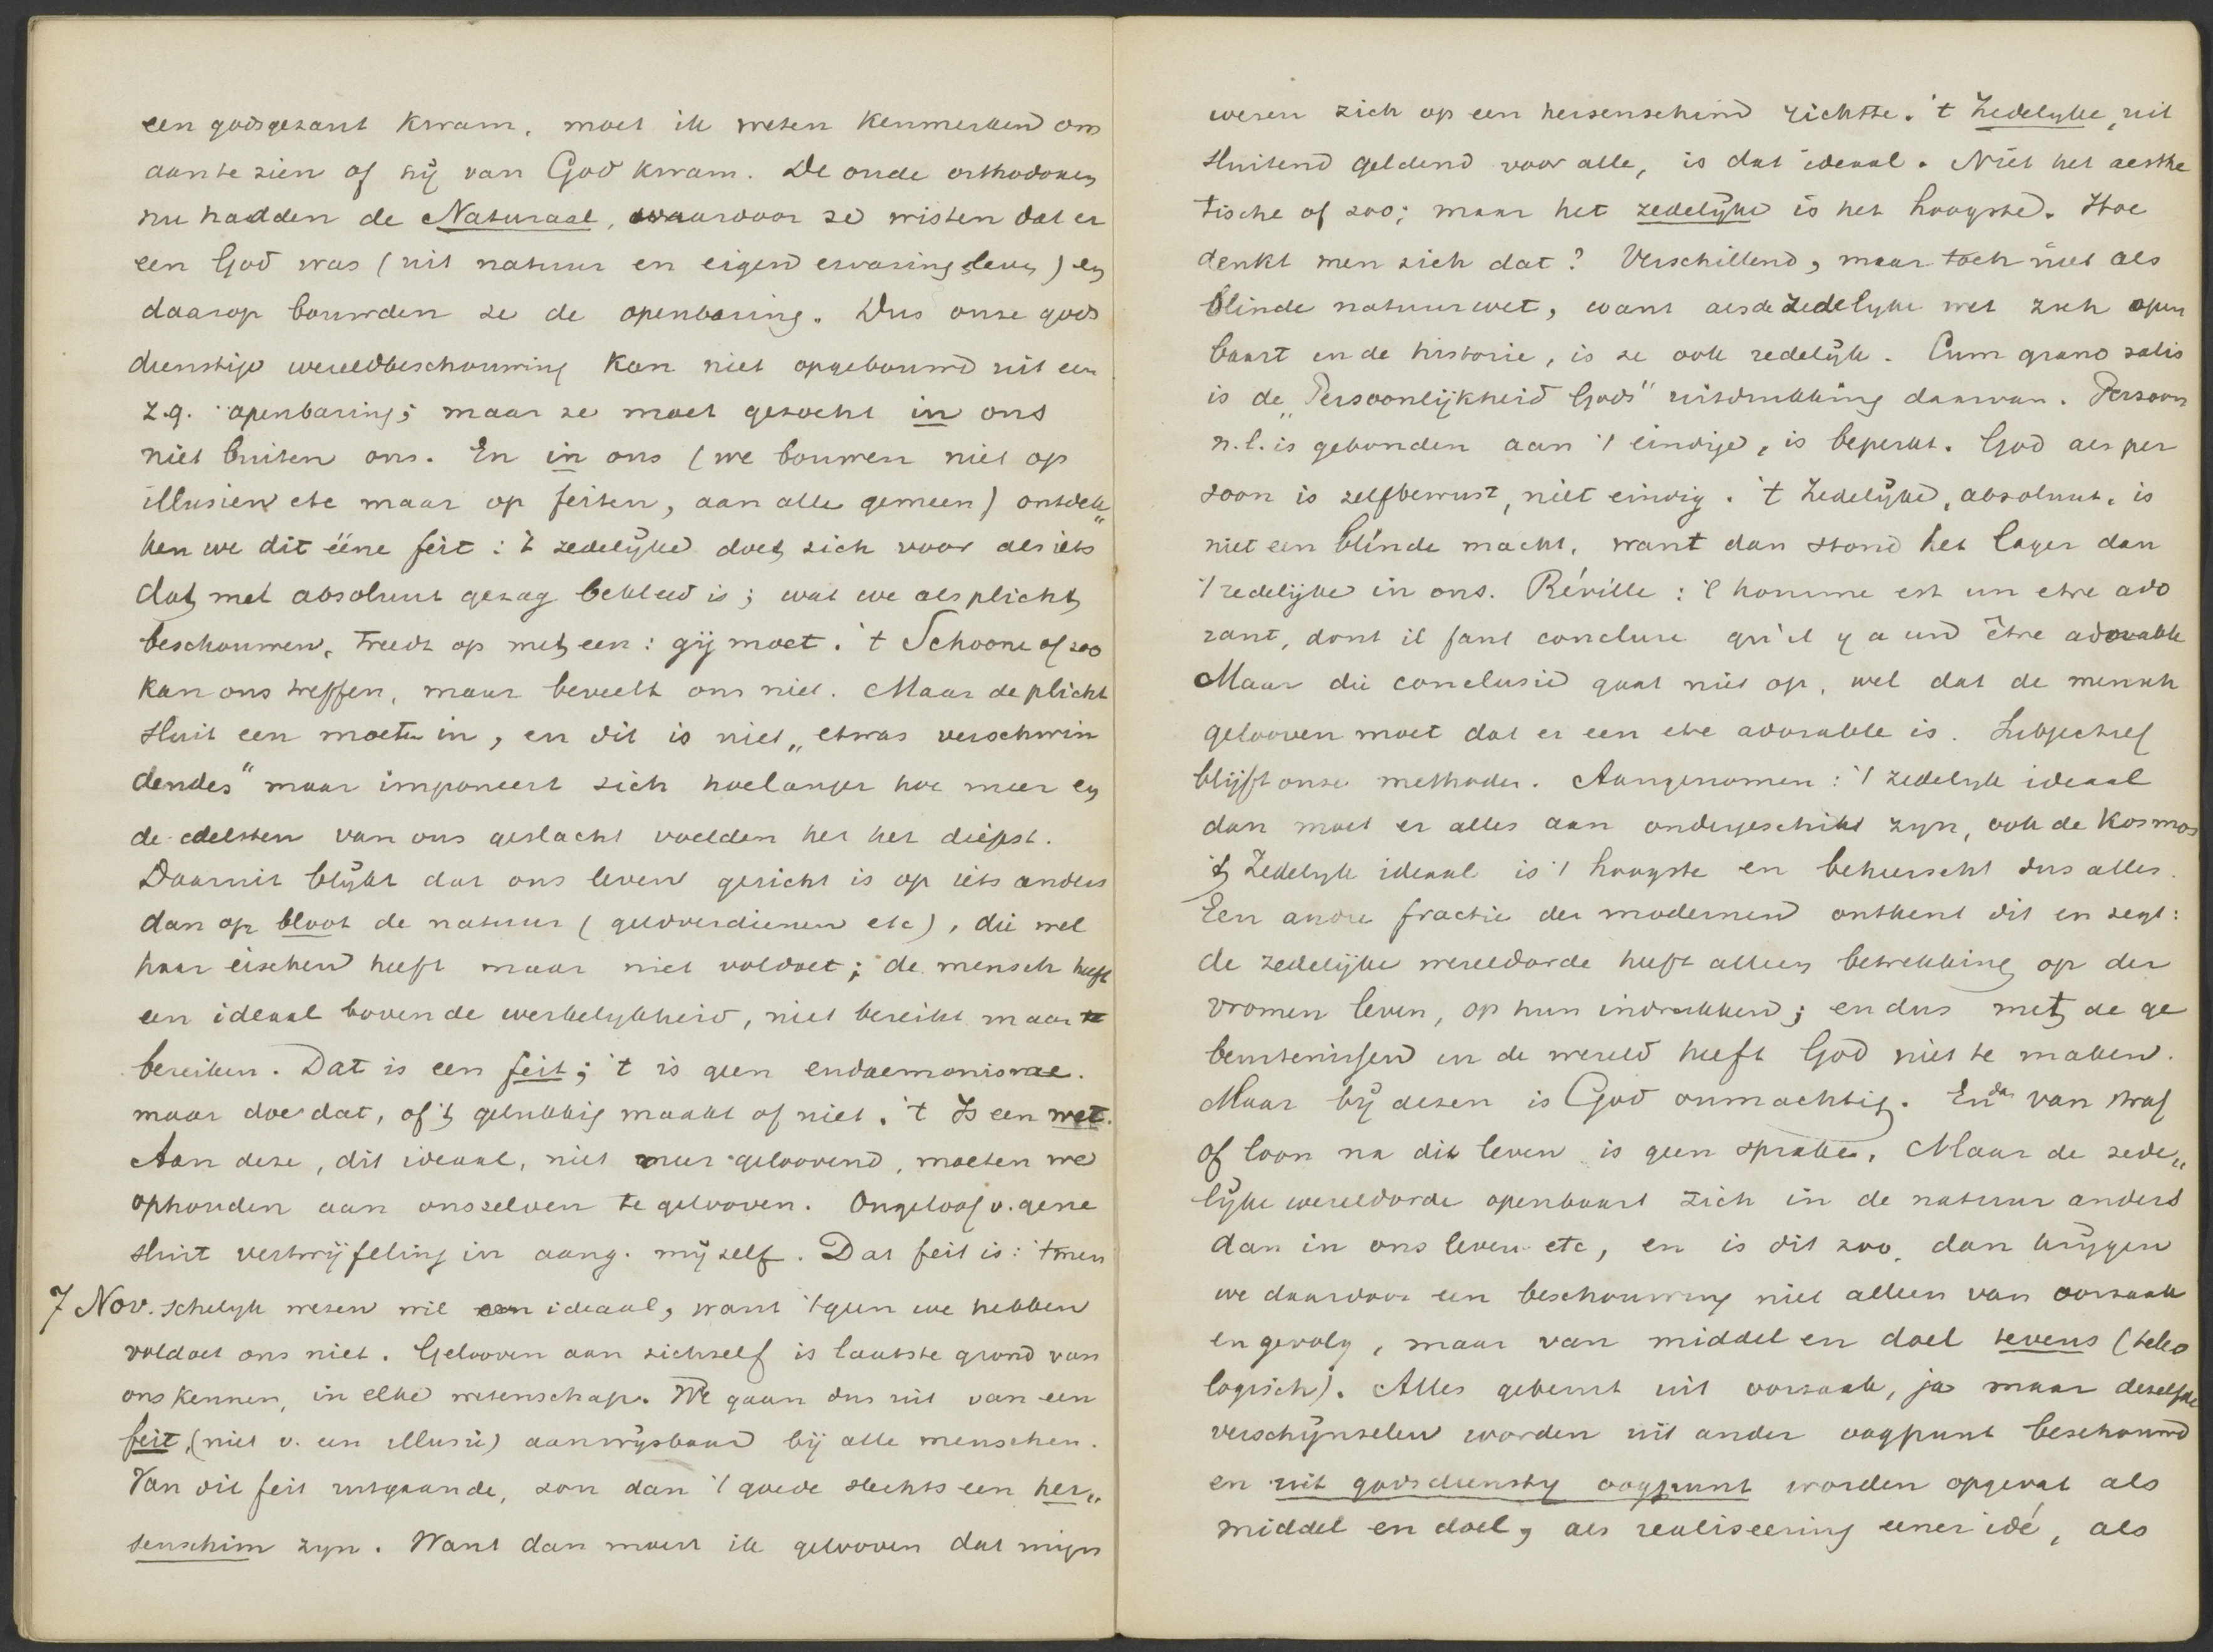 een godsgezant kwam, moet ik weten kenmerken om
aan te zien of hij van God kwam. De oude orthodoxen
nu hadden de Naturaal, waardoor ze wisten dat er
een God was (uit natuur en eigen ervaring, leven) en
daarop bouwden ze de openbaring. Dus onze gods
dienstige wereldbeschouwing kan niet opgebouwd uit een
z.g. openbaring; maar ze moet gezocht in ons
niet buiten ons. En in ons (we bouwen niet op
illusien etc maar op feiten, aan alle gemeen) ontdek„
ken we dit ééne feit: 't zedelijke doet zich voor als iets
dat met absoluut gezag bekleed is; wat we als plicht
beschouwen, treedt op met een: gij moet. 't Schoone of zoo
kan ons treffen, maar beveelt ons niet. Maar de plicht
sluit een moeten in, en dit is niet „etwas verschwin
dendes" maar imponeert zich hoelanger hoe meer en
de edelsten van ons geslacht voelden het het diepst.
Daaruit blijkt dat ons leven gericht is op iets anders
dan op bloot de natuur (geldverdienen etc), die wel
haar eischen heeft maar niet voldoet; de mensch heeft
een ideaal boven de werkelykheid, niet bereikt maar te
bereiken. Dat is een feit; 't is geen eudaemonisme.
maar doe dat, of 't gelukkig maakt of niet. 't Is een wet.
Aan deze, dit ideaal, niet meer geloovend, moeten we
ophouden aan onszelven te gelooven. Ongeloof v. gene
sluit vertwijfeling in aang. mijzelf. Dat feit is: 't men
7 Nov. schelyk wezen wil een ideaal, want 't geen we hebben
voldoet ons niet. Gelooven aan zichzelf is laatste grond van
ons kennen, in elke wetenschap. We gaan dus uit van een
feit, (niet v. een illusie) aanwijsbaar bij alle menschen.
Van dit feit uitgaande, zou dan 't goede slechts een her„
senschim zyn. Want dan moest ik gelooven dat mijn
wezen zich op een hersenschim richtte. 't Zedelyke, uit
sluitend geldend voor alle, is dat ideaal. Niet het aesthe
tische of zoo; maar het zedelijke is het hoogste. Hoe
denkt men zich dat? Verschillend, maar toch niet als
blinde natuurwet, want als de zedelyke wet zich open
baart in de historie, is ze ook redelijk. Cum grano salis
is de „Persoonlijkheid Gods" uitdrukking daarvan. Persoon
n.l. is gebonden aan 't eindige, is beperkt. God als per
soon is zelfbewust, niet eindig. 't Zedelijke, absoluut, is
niet een blinde macht, want dan stond het lager dan
't redelijke in ons. Réville: l'homme est un etre ado
rant, dont il faut conclure qu'il y a un être adorable
Maar die conclusie gaat niet op, wel dat de mensch
gelooven moet dat er een etre adorable is. Subjectief
blijft onze methode. Aangenomen: 't zedelyk ideaal
dan moet er alles aan ondergeschikt zyn, ook de Kosmos
't Zedelyk ideaal is 't hoogste en beheerscht dus alles.
Een andre fractie der modernen ontkent dit en zegt:
de zedelijke wereldorde heeft alleen betrekking op der
vromen leven, op hun indrukken; en dus met de ge
beurtenissen in de wereld heeft God niet te maken.
Maar bij dezen is God onmachtig. En dan van straf
of loon na dit leven is geen sprake. Maar de zede„
lijke wereldorde openbaart zich in de natuur anders
dan in ons leven etc, en is dit zoo, dan krijgen
we daardoor een beschouwing niet alleen van oorzaak
en gevolg, maar van middel en doel tevens (teleo
logisch). Alles gebeurt uit oorzaak, ja maar dezelfde
verschijnselen worden uit ander oogpunt beschouwd
en uit godsdienstig oogpunt worden opgevat als
middel en doel, als realiseering eener idé, als